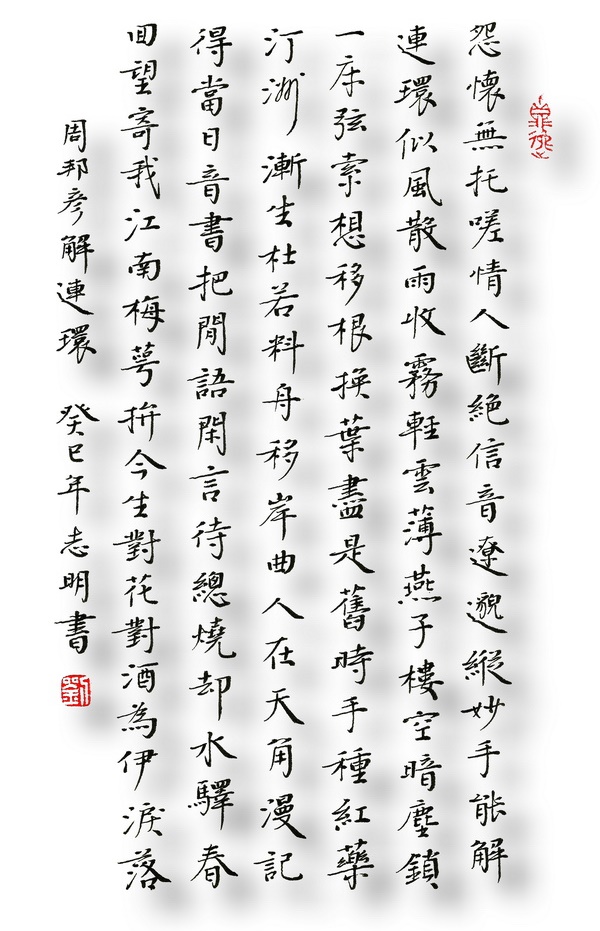 怨懷無托嗟情人斷絕信音遼邈縱妙手能解
連環似風散雨收霧輕雲薄燕子樓空暗塵鎖
一床弦索想移根換葉盡是舊時手種紅藥
汀洲漸生杜若料舟移岸曲人在天角漫記
得當日音書把閒語閑言待總燒却水驛春
囬望寄我江南梅萼拚今生對花對酒為伊淚落
周邦彥解連環 癸巳年志明書
劉